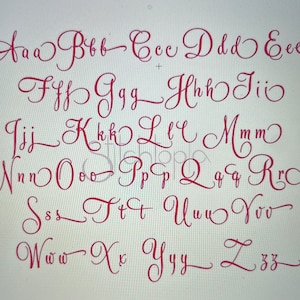 Aaa Bbb Ccc Ddd Eee
Fff Ggg Hhh Iii
Jjj Kkk Lll Mmm
Nnn Ooo Ppp Qqq Rrr
Sss Ttt Uuu Vvv
Www Xx Yyy Zzz
Stitchtopia